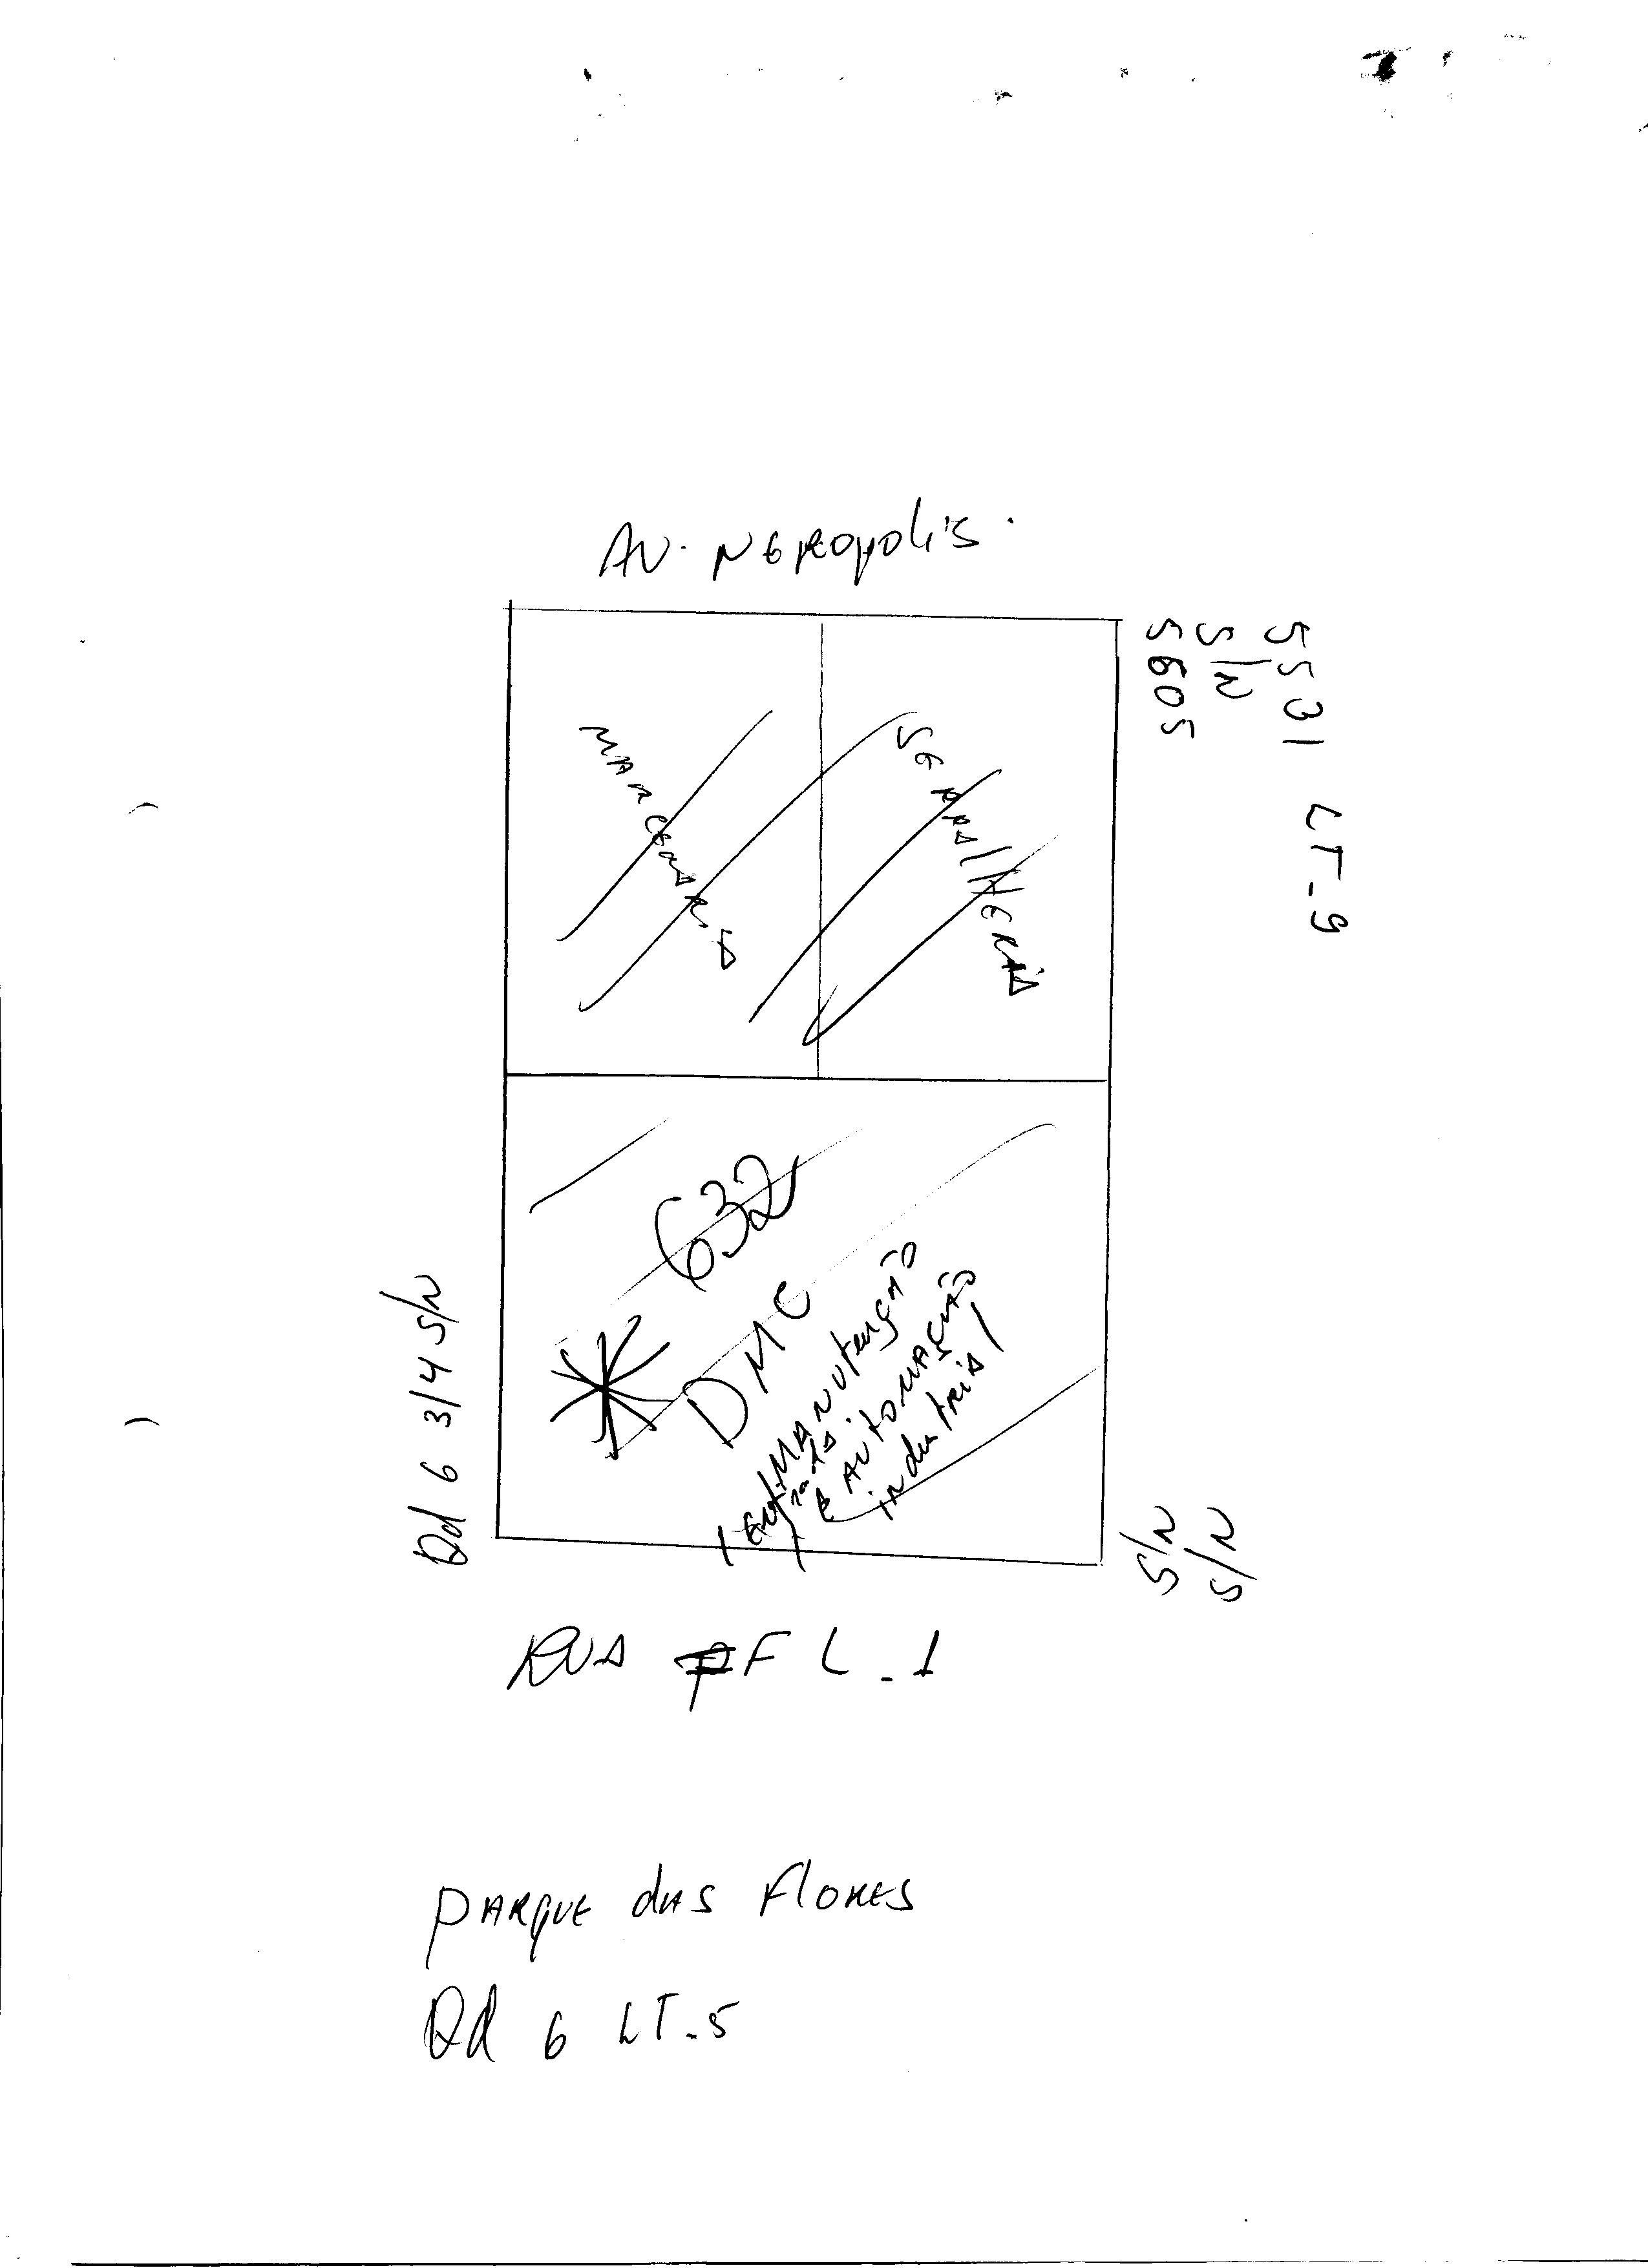 AV. NERopolis.
5531 LT-9
S/N
5605
MARCEARIA
SERRALHERIA
632
DMC
MANUTENÇÃO
E AUTOMAÇÃO
industrial
Qd 6 3/4 S/N
S/N
S/N
RUA PFL-1
PARQUE dAS FloRES
Qd 6 LT-5